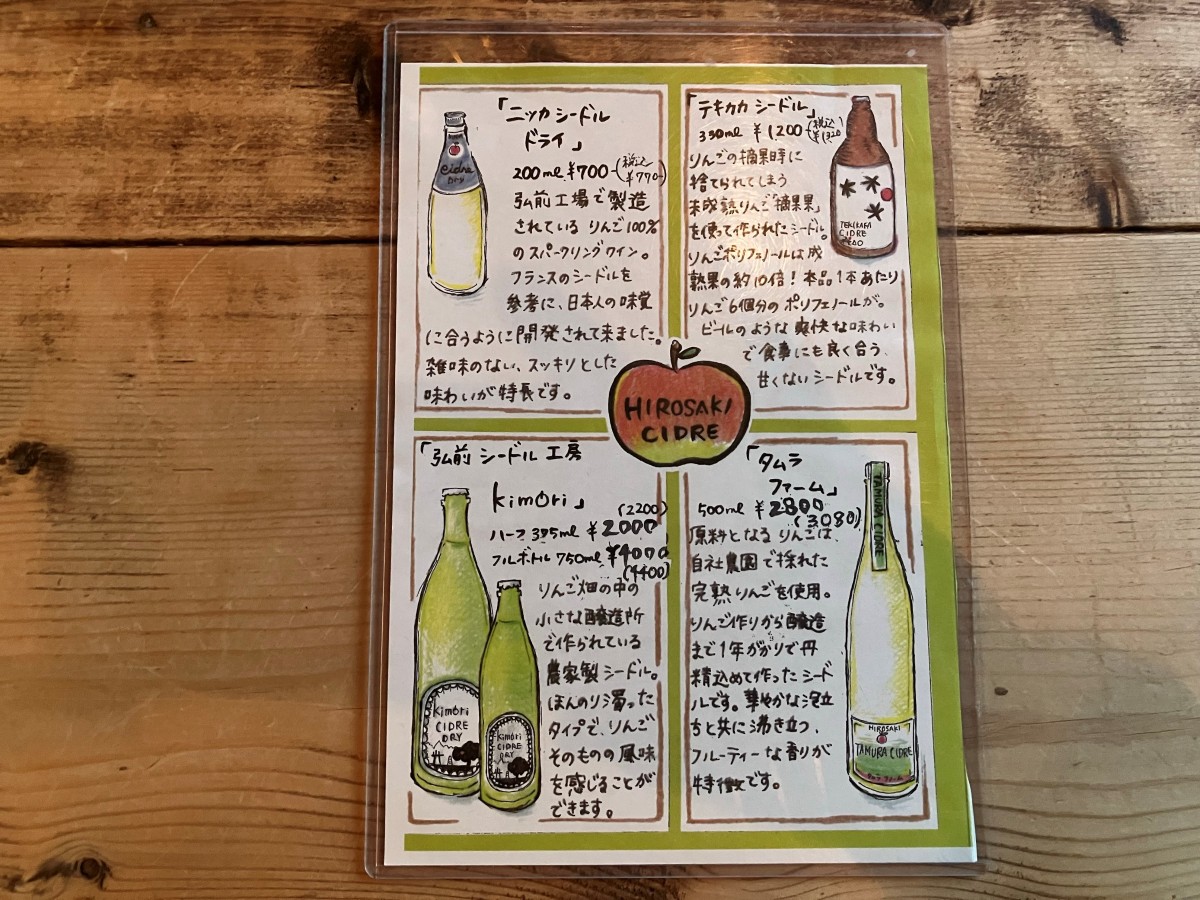 「ニッカシードル
ドライ」
200ml ¥700 (税込 ¥770)
弘前工場で製造
されている りんご100%
のスパークリングワイン。
フランスのシードルを
参考に、日本人の味覚
に合うように開発されて来ました。
雑味のない、スッキリとした
味わいが特長です。
Cidre
DRY
「テキカカ シードル」
330ml ¥1,200 (税込 ¥1320)
りんごの摘果時に
捨てられてしまう
未成熟りんご「摘果果」
を使って作られたシードル。
りんごポリフェノールは成
熟果の約10倍!本品1本あたり
りんご6個分の ポリフェノールが。
ビールのような爽快な味わい
で食事にも良く合う、
甘くないシードルです。
TEKIKAKA
CIDRE
HIROSAKI
CIDRE
「弘前シードル工房
kimori」
(2200)
ハーフ 375ml ¥2000
フルボトル 750ml ¥4000
(4400)
りんご畑の中の
小さな醸造所
で作られている
農家製シードル。
ほんのり濁った
タイプで、りんご
そのものの風味
を感じることが
できます。
kimori
CIDRE
DRY
kimori
CIDRE
DRY
「タムラ
ファーム」
500ml ¥2800
(3,080)
原料となるりんごは、
自社農園で採れた
完熟りんごを使用。
りんご作りから醸造
まで1年がかりで丹
精込めて作ったシード
ルです。華やかな泡立
ちと共に沸き立つ、
フルーティーな香りが
特徴です。
TAMURA CIDRE
HIROSAKI
TAMURA CIDRE